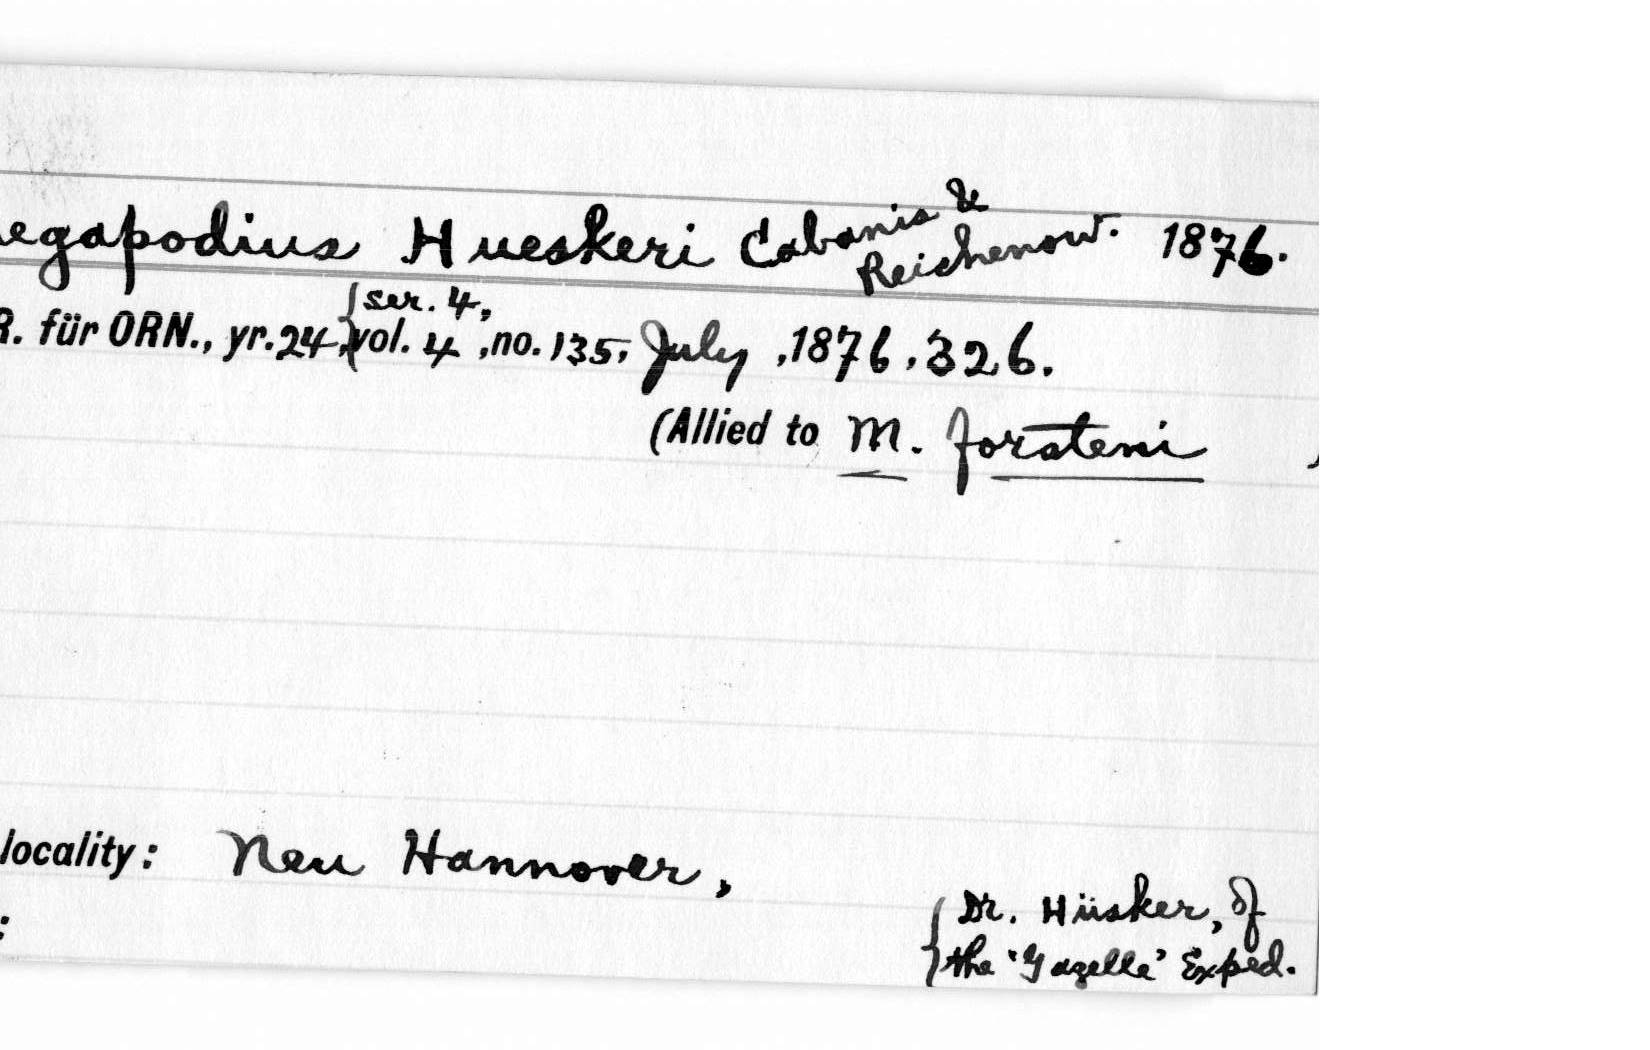 egapodius Hueskeri Cabanis &
Reichenow. 1876.
R. für ORN., yr. 24, {ser. 4,
vol. 4, no. 135, July, 1876, 326.
(Allied to M. forsteni )
locality: Neu Hannover,
:
{Dr. Hüsker, of
the 'Gazelle' Exped.